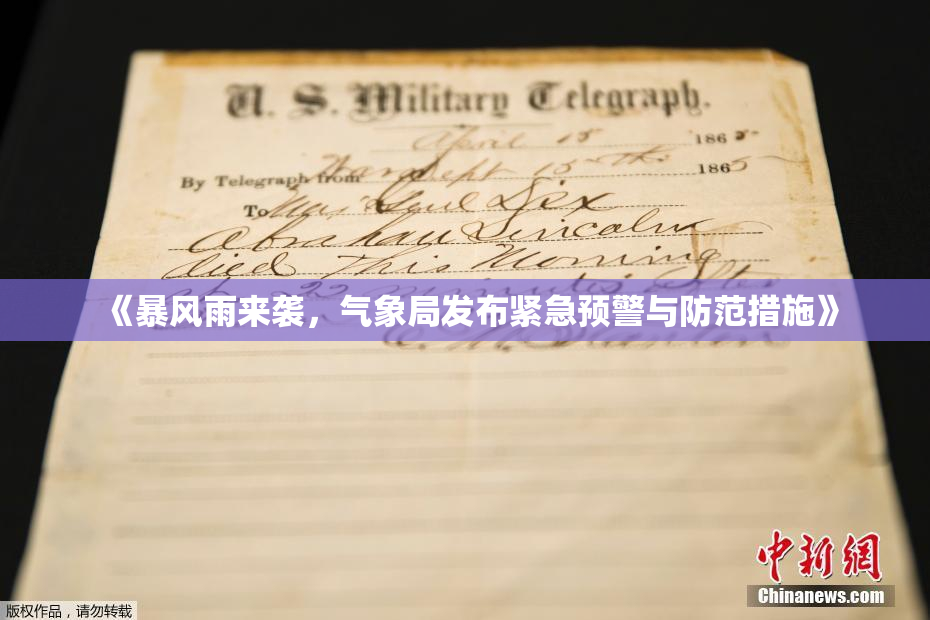 U. S. Military Telegraph.
April 15 1865
By Telegraph from War Dept 15th 1865
To Maj Genl Dix
Abraham Lincoln
died This Morning
at 22 minutes after
《暴风雨来袭，气象局发布紧急预警与防范措施》
E. M. Stanton
中新網
Chinanews.com
版权作品，请勿转载